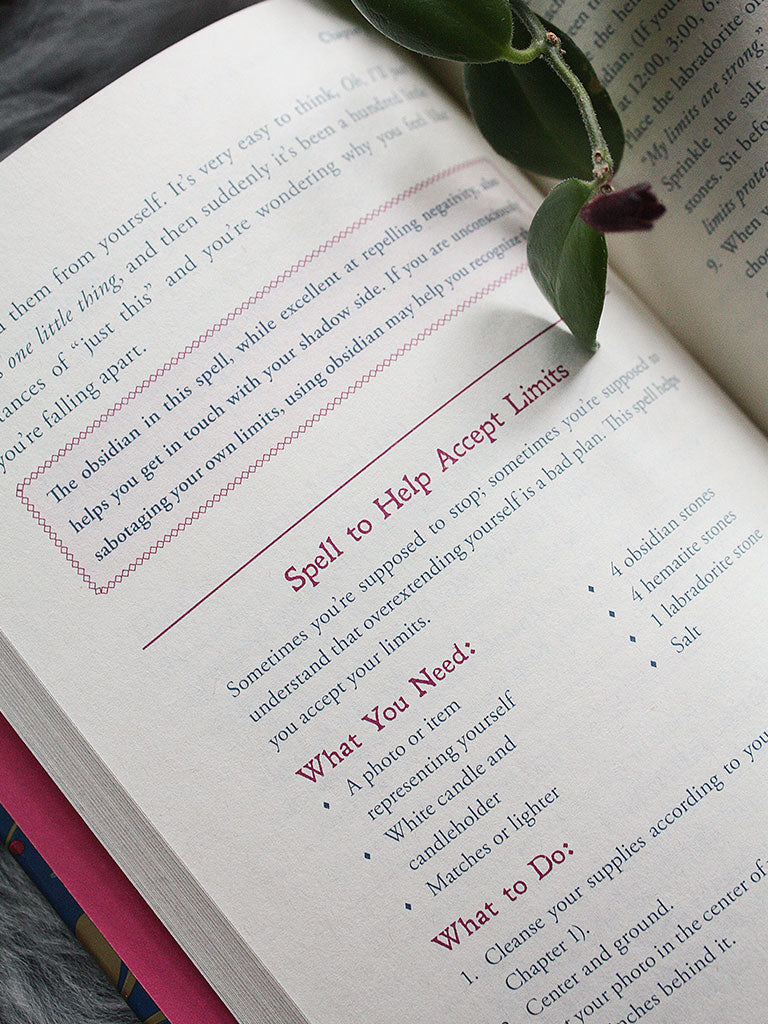 them from yourself. It's very easy to think, Oh, I'll
one little thing, and then suddenly it's been a hundred little
"just this" and you're wondering why you feel like
you're falling apart.
The obsidian in this spell, while excellent at repelling negativity, also
helps you get in touch with your shadow side. If you are unconsciously
sabotaging your own limits, using obsidian may help you recognize
Spell to Help Accept Limits
Sometimes you're supposed to stop; sometimes you're supposed to
understand that overextending yourself is a bad plan. This spell helps
you accept your limits.
What You Need:
⬧ A photo or item
representing yourself
⬧ White candle and
candleholder
⬧ Matches or lighter
⬧ 4 obsidian stones
⬧ 4 hematite stones
⬧ 1 labradorite stone
⬧ Salt
What to Do:
1. Cleanse your supplies according to
Chapter 1).
Center and ground.
your photo in the center of
behind it.
the
(If you
at 12:00, 3:00, 6:
the labradorite
"My limits are strong
Sprinkle the salt
stones. Sit
limits
9. When